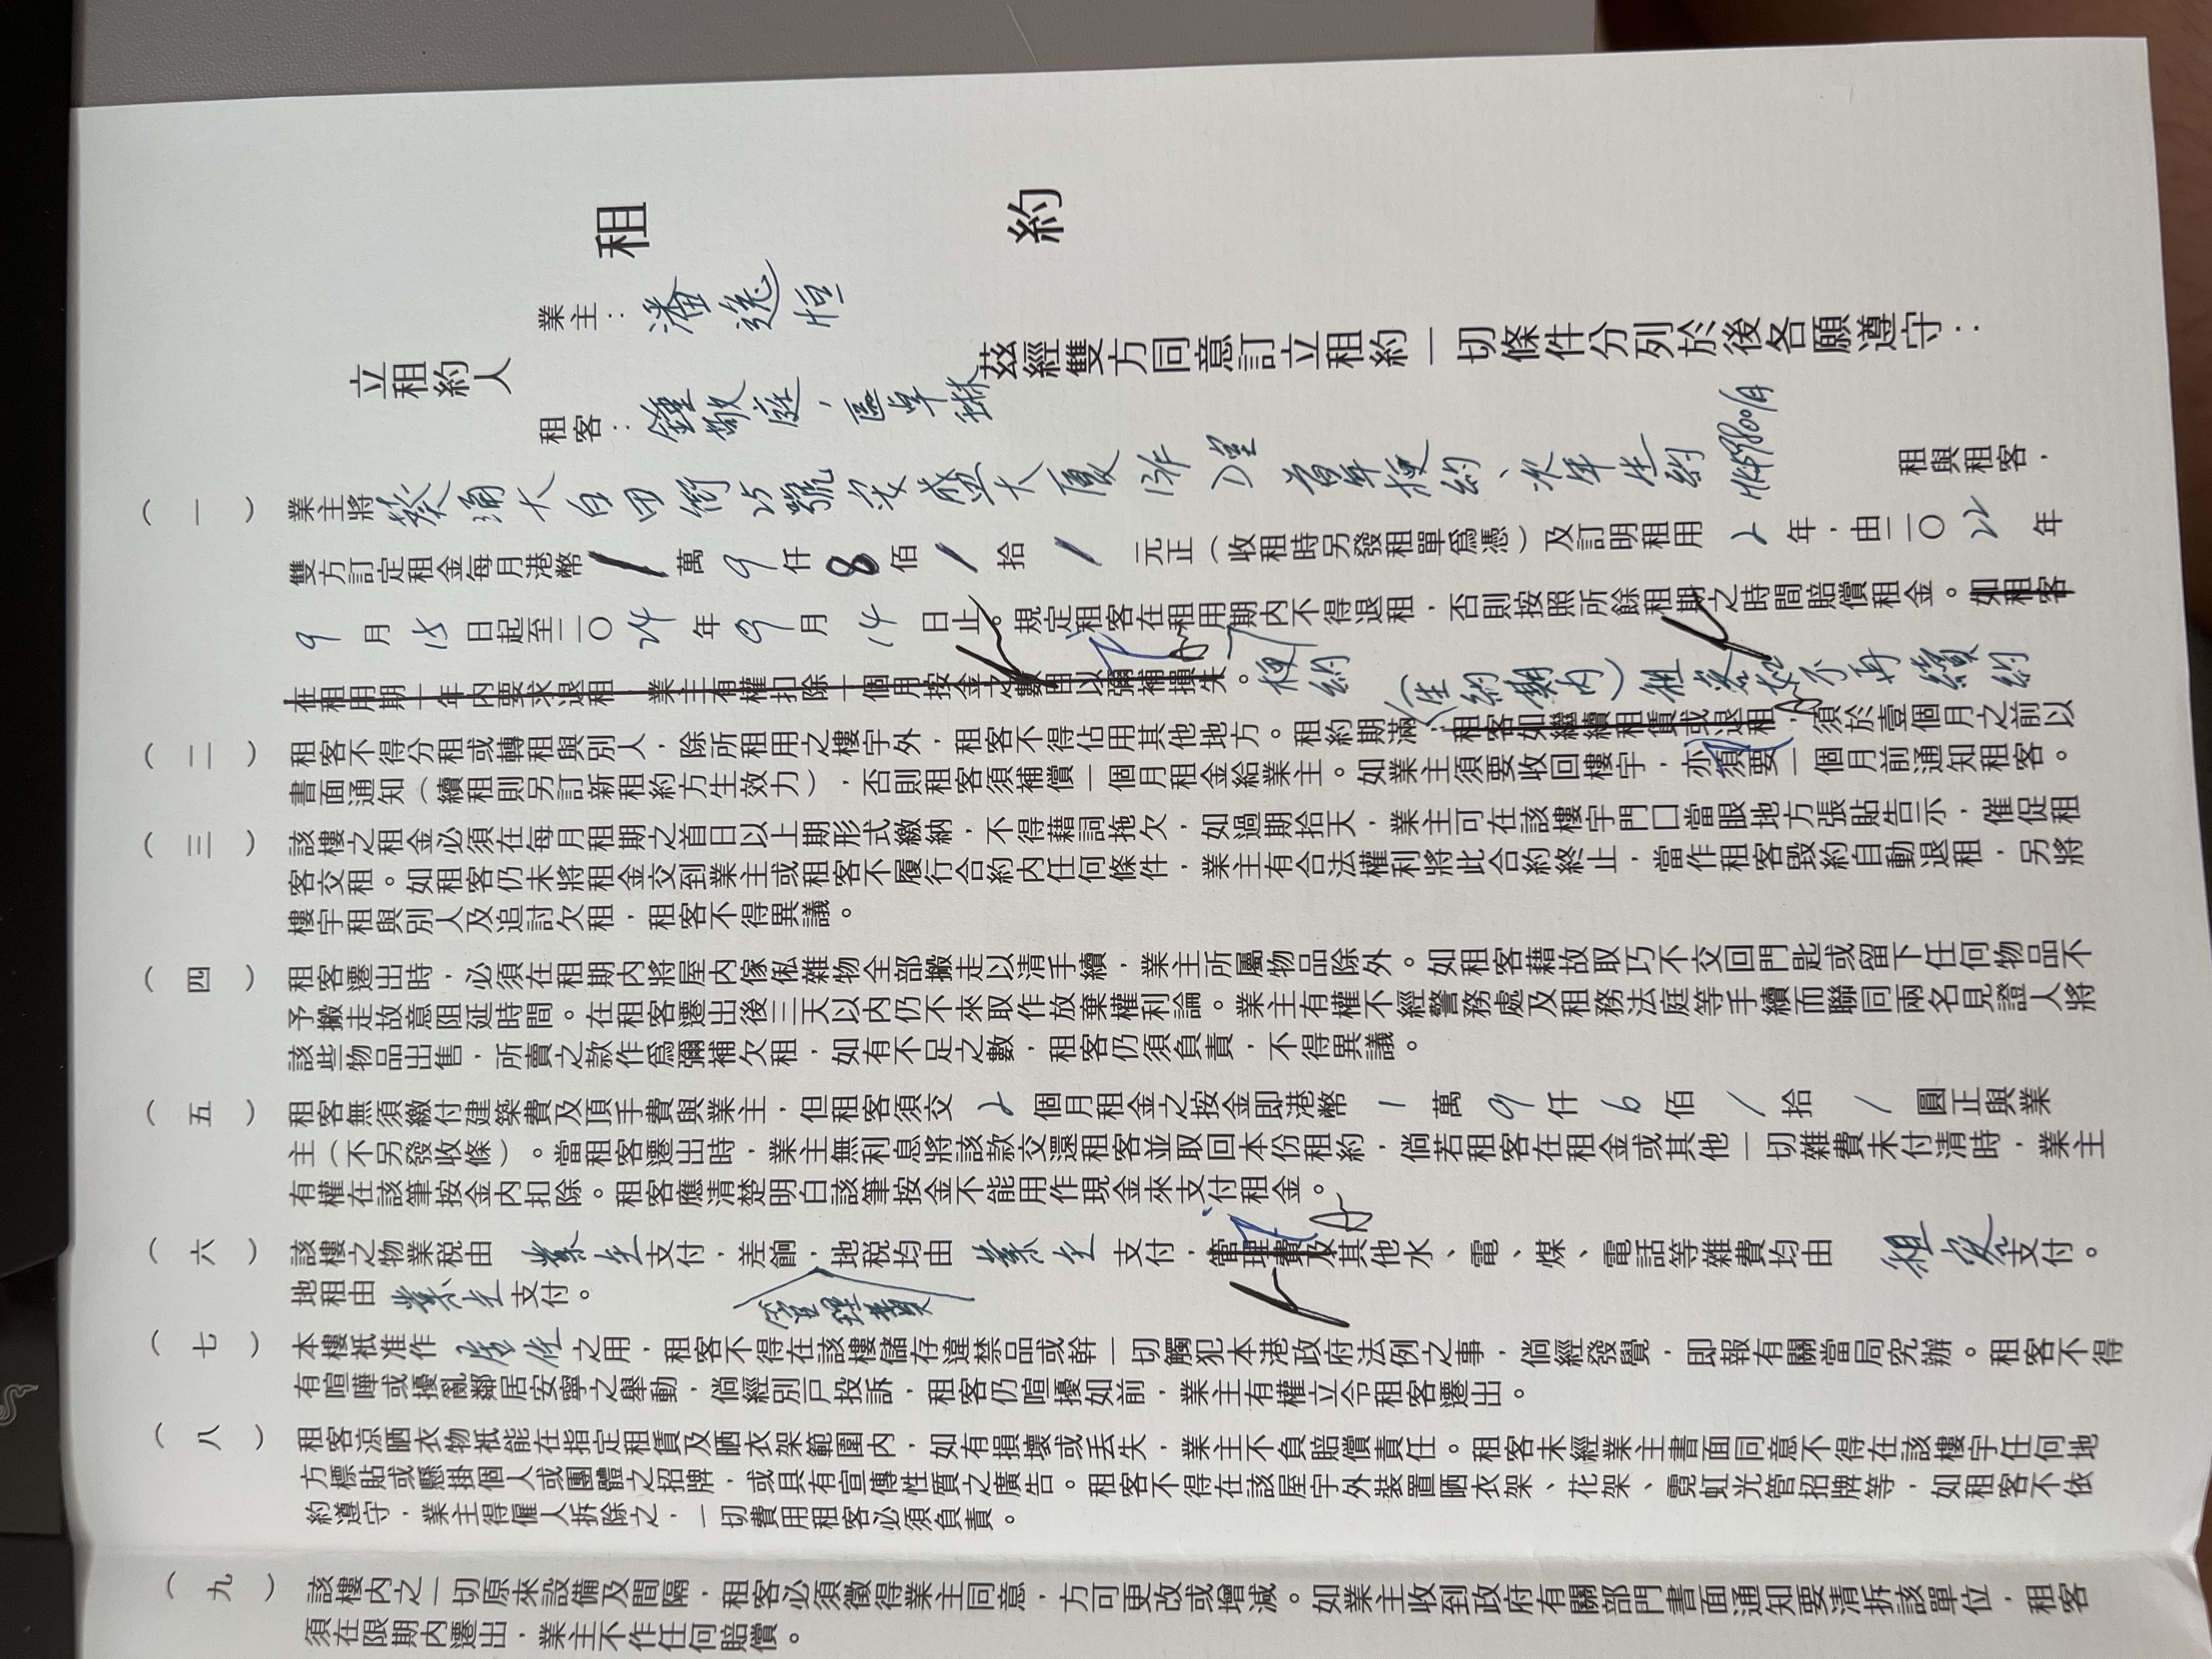 租約
立租約人
業主：潘逸恒
租客：鍾敬庭，區卓琳
茲經雙方同意訂立租約一切條件分列於後各願遵守：
（一） 業主將葵涌大白田街25號安盛大廈13/F D室 首年梗約、次年生約 HK$9800/月 租與租客，
雙方訂定租金每月港幣 / 萬 9 仟 8 佰 / 拾 / 元正（收租時另發租單爲憑）及訂明租用 2 年，由二〇22年
9月15日起至二〇24年9月14日止。規定租客在租用期內不得退租，否則按照所餘租期之時間賠償租金。如租客
在租用期一年內要求退租，業主有權扣除一個月按金之數目以彌補損失。梗約
（生約期內）租客如不再續約
（二） 租客不得分租或轉租與別人，除所租用之樓宇外，租客不得佔用其他地方。租約期滿，租客如繼續租賃或退租，須於壹個月之前以
書面通知（續租則另訂新租約方生效力），否則租客須補償一個月租金給業主。如業主須要收回樓宇，亦須要一個月前通知租客。
（三） 該樓之租金必須在每月租期之首日以上期形式繳納，不得藉詞拖欠，如過期拾天，業主可在該樓宇門口當眼地方張貼告示，催促租
客交租。如租客仍未將租金交到業主或租客不履行合約內任何條件，業主有合法權利將此合約終止，當作租客毀約自動退租，另將
樓宇租與別人及追討欠租，租客不得異議。
（四） 租客遷出時，必須在租期內將屋內傢俬雜物全部搬走以清手續，業主所屬物品除外。如租客藉故取巧不交回門匙或留下任何物品不
予搬走故意阻延時間。在租客遷出後三天以內仍不來取作放棄權利論。業主有權不經警務處及租務法庭等手續而聯同兩名見證人將
該些物品出售，所賣之款作爲彌補欠租，如有不足之數，租客仍須負責，不得異議。
（五） 租客無須繳付建築費及頂手費與業主，但租客須交 2 個月租金之按金即港幣 1 萬 9 仟 6 佰 / 拾 / 圓正與業
主（不另發收條）。當租客遷出時，業主無利息將該款交還租客並取回本份租約，倘若租客在租金或其他一切雜費未付清時，業主
有權在該筆按金內扣除。租客應清楚明白該筆按金不能用作現金來支付租金。
（六） 該樓之物業税由業主支付，差餉，地税均由業主支付，管理費及其他水、電、煤、電話等雜費均由租客支付。
地租由業主支付。 管理費
（七） 本樓祇准作居住之用，租客不得在該樓儲存違禁品或幹一切觸犯本港政府法例之事，倘經發覺，即報有關當局究辦。租客不得
有喧嘩或擾亂鄰居安寧之舉動，倘經別戶投訴，租客仍喧擾如前，業主有權立令租客遷出。
（八） 租客涼晒衣物祇能在指定租賃及晒衣架範圍內，如有損壞或丟失，業主不負賠償責任。租客未經業主書面同意不得在該樓宇任何地
方標貼或懸掛個人或團體之招牌，或具有宣傳性質之廣告。租客不得在該屋宇外裝置晒衣架、花架、霓虹光管招牌等，如租客不依
約遵守，業主得僱人拆除之，一切費用租客必須負責。
（九） 該樓內之一切原來設備及間隔，租客必須徵得業主同意，方可更改或增減。如業主收到政府有關部門書面通知要清拆該單位，租客
須在限期內遷出，業主不作任何賠償。